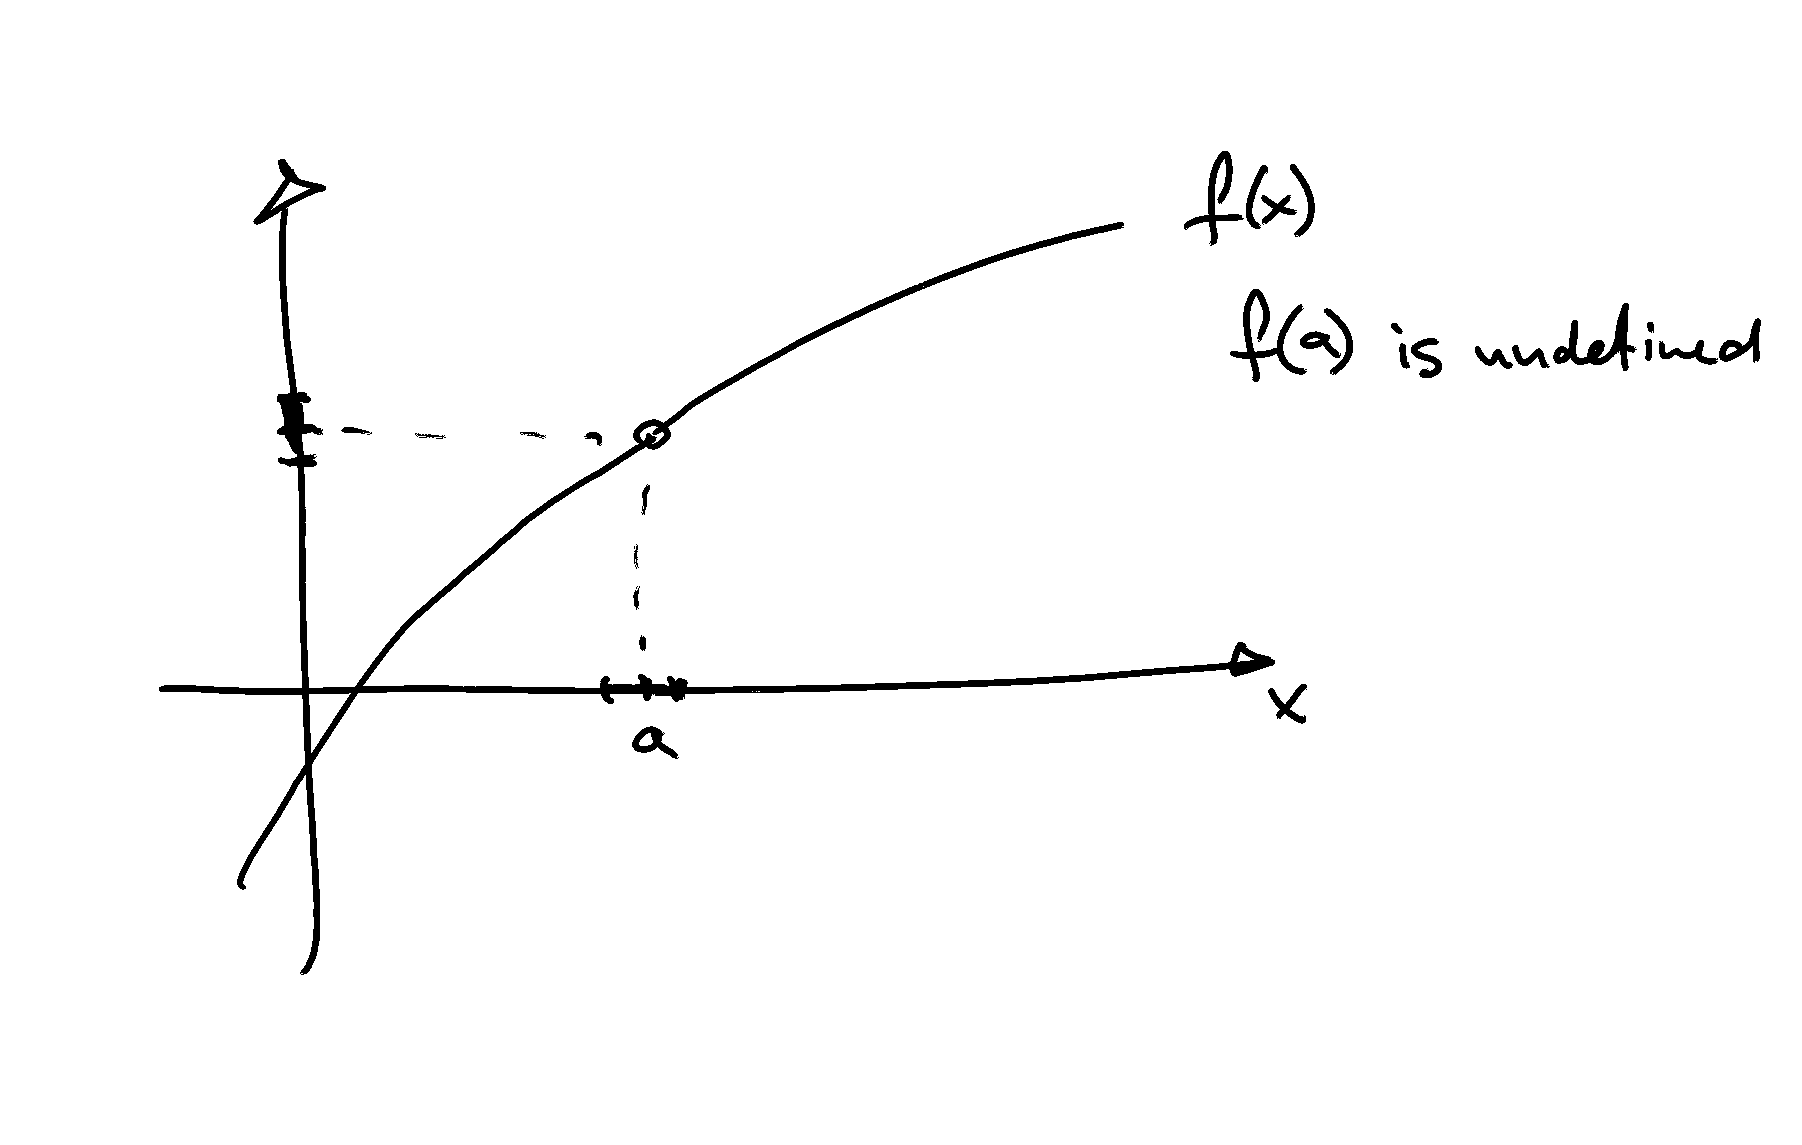 f(x)
f(a) is undefined
x
a